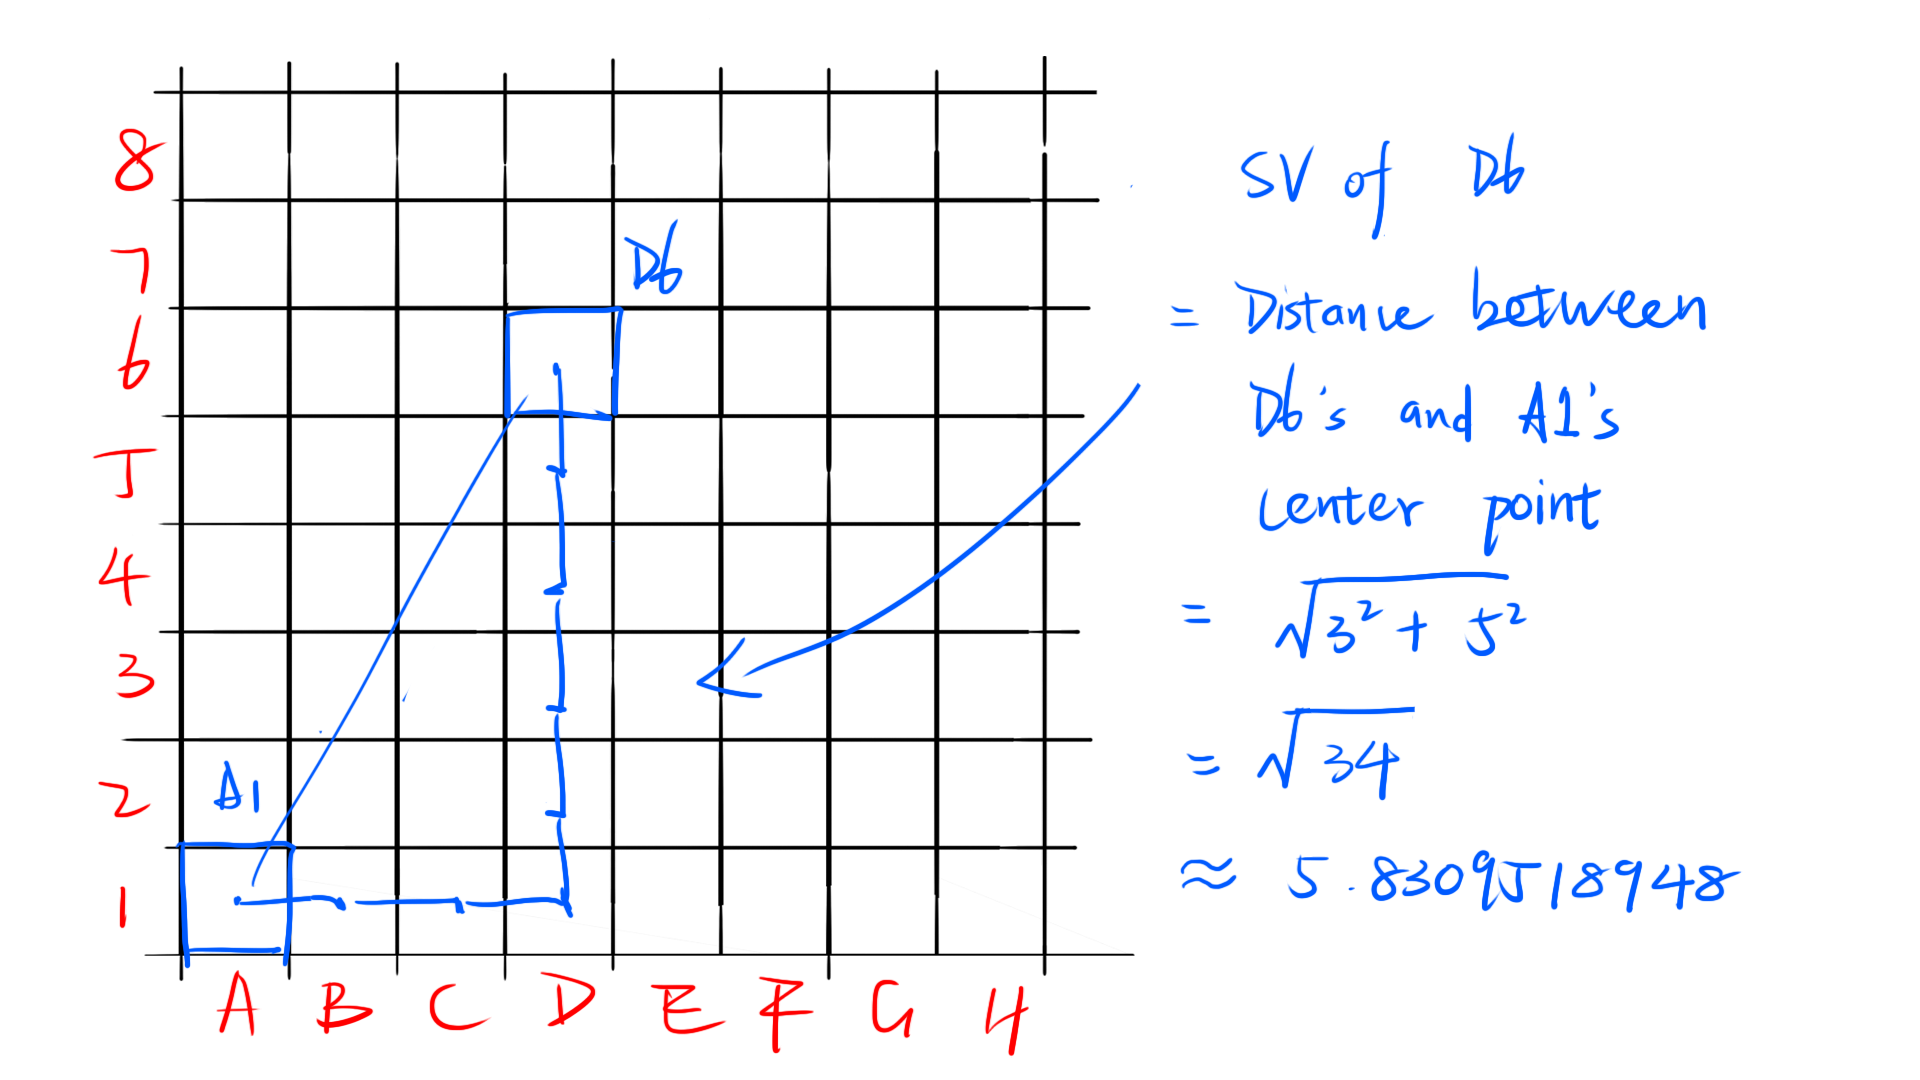 8
7
D6
6
5
4
3
2
A1
1
A B C D E F G H
SV of D6
= Distance between
D6's and A1's
center point
= √3² + 5²
= √34
≈ 5.8309518948